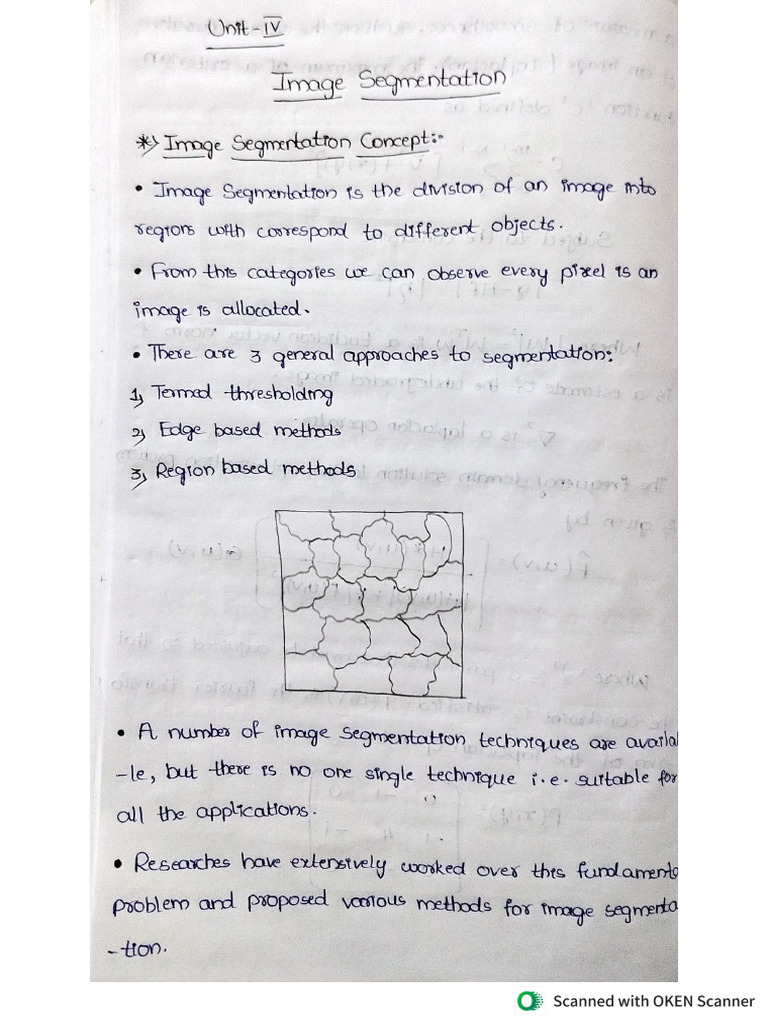 Unit-IV
Image Segmentation
*) Image Segmentation Concept:-
• Image Segmentation is the division of an image into
regions with correspond to different objects.
• From this categories we can observe every pixel is an
image is allocated.
• There are 3 general approaches to segmentation:
1) Termed thresholding
2) Edge based methods
3) Region based methods
• A number of image segmentation techniques are availab
-le, but there is no one single technique i.e. suitable for
all the applications.
• Researches have extensively worked over this fundamenta
problem and proposed various methods for image segmenta
-tion.
Scanned with OKEN Scanner